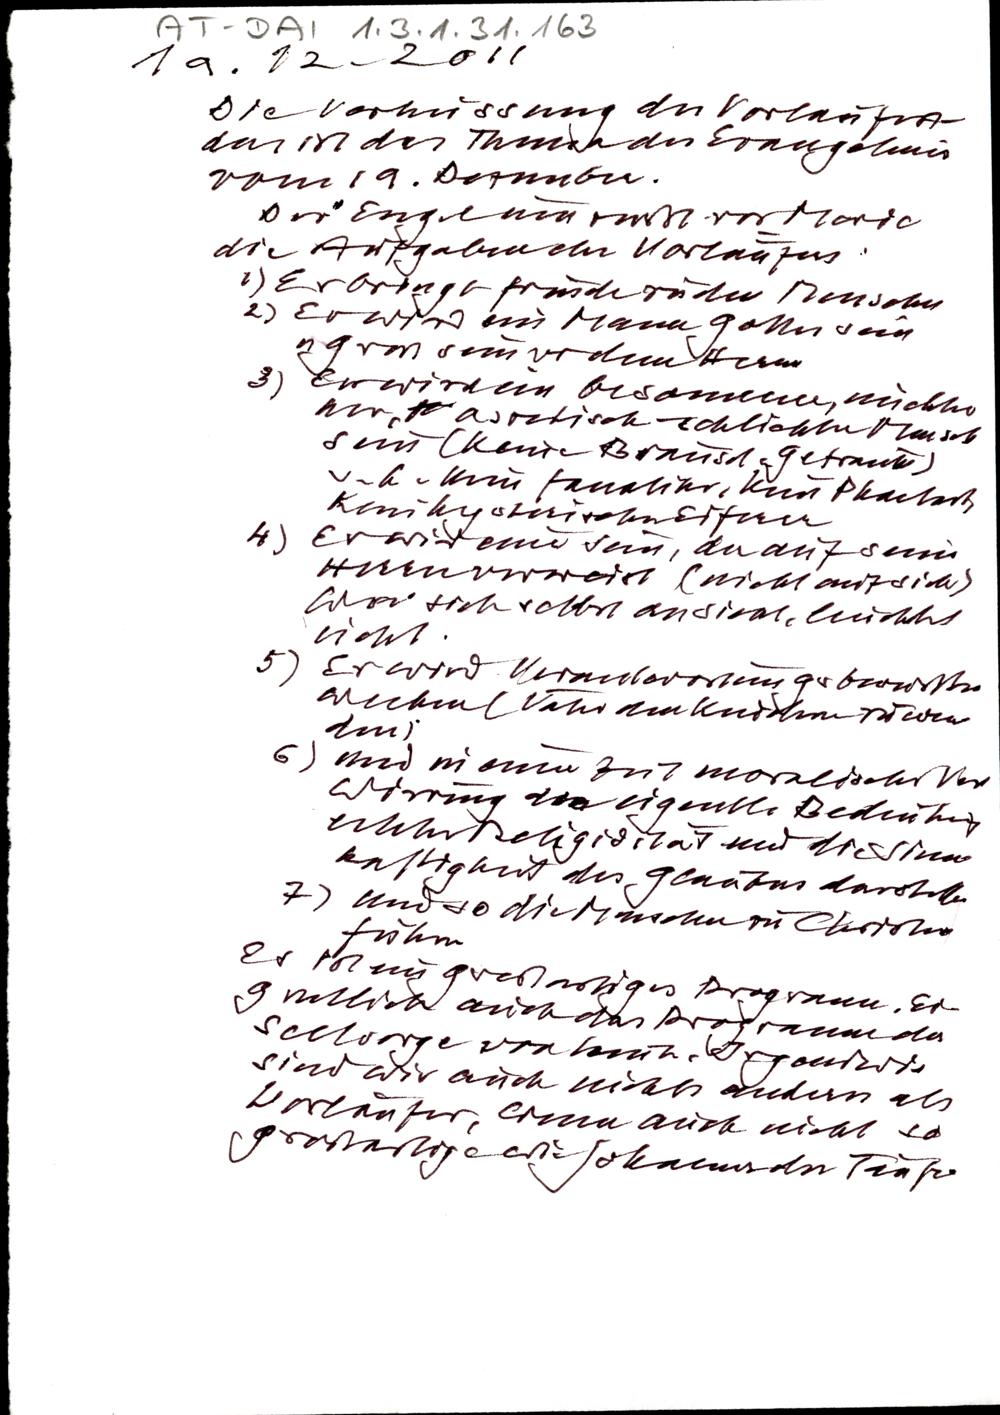 AT-DAI 1.3.1.31.163
19.12.2011
Die Verheissung des Vorläufers
das ist das Thema des Evangeliums
vom 19. Dezember.
Der Engel vor Maria
die Aufgaben des Vorläufers:
1) Er bringt Freude zu den Menschen
2) Er wird ein Mann Gottes sein
gross sein vor dem Herrn
3) Er wird ein besonnener, nüchter
ner, asketisch-schlichter Mensch
sein (keine Berausch. Getränke)
d.h. kein Fanatiker, kein
kein hysterischer Eiferer
4) Er wird einer sein, der auf seinen
Herrn verweist (nicht auf sich)
Wer sich selbst ansieht, leuchtet
nicht.
5) Er wird Verantwortungsbewusstsein
wecken (Väter den Kindern zuwen
den)
6) und in einer Zeit moralischer Ver
wirrung die eigentl. Bedeutung
echter Religiosität und die Sinn
haftigkeit des Glaubens darstellen
7) und so die Menschen zu Christus
führen
Es ist ein grossartiges Programm. Ei-
gentlich auch das Programm der
Seelsorge von heute. Irgendwie
sind wir auch nichts anderes als
Vorläufer, wenn auch nicht so
grossartige wie Johannes der Täufer